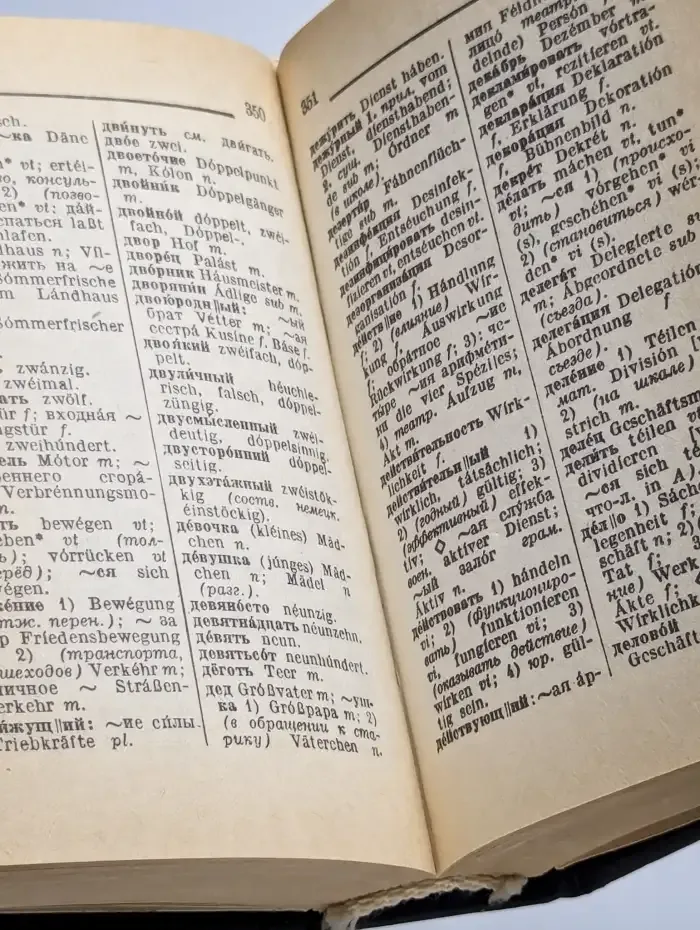 350
sch.
~ка Dänc
en* vt; ertél-
о, консуль-
2) (позво-
en* vt; дай-
спаться laßt
hlafen.
dhaus n; Vil-
жить на ~е
Sómmerfrische
m Lándhaus
Sómmerfrischer
zwánzig.
zwéimal.
ать zwölf.
tür f; входная ~
ngstür f.
zweihúndert.
ель Mótor m; ~
реннего сгора-
Verbrénnungsmo-
m.
ть bewégen vt;
eben* vt (тол-
ь); vórrücken vt
ерёд); ~ся sich
wégen.
же́ние 1) Bewégung
тж. перен.); ~ за
р Friedensbewegung
2) (транспорта,
шеходов) Verkéhr m;
ничное ~ Stráßen-
erkehr m.
и́жущ||ий: ~ие си́лы
Triebkräfte pl.
дви́нуть см. дви́гать.
дво́е zwei.
двоето́чие Dóppelpunkt
m, Kólon n.
двойни́к Dóppelgänger
m.
двойно́й dóppelt, zwéi-
fach, Dóppel-.
двор Hof m.
дворе́ц Palást m.
дво́рник Háusmeister m.
дворяни́н Ádlige sub m.
двою́родн||ый: ~ый
брат Vétter m; ~ая
сестра́ Kusíne f, Báse f.
двоя́кий zwéifach, dóp-
pelt.
двули́чный héuchle-
risch, falsch, dóppel-
züngig.
двусмы́сленный zwéi-
deutig, dóppelsinnig.
двусторо́нний dóppel-
seitig.
двухэта́жный zwéistök-
kig (соотв. немецк.
éinstöckig).
де́вочка (kléines) Mäd-
chen n.
де́вушка (júnges) Mäd-
chen n; Mädel n
(разг.).
девяно́сто néunzig.
девятна́дцать néunzehn.
де́вять neun.
девятьсо́т neunhúndert.
дёготь Teer m.
дед Gróßvater m; ~уш-
ка 1) Gróßpapa m; 2)
(в обращении к ста-
рику) Väterchen n.
351
дежу́рить Dienst háben.
дежу́рный 1. прил. vom
Dienst, díensthabend;
2. сущ. Díensthaben-
de sub m; (в школе) Órdner m
дезерти́р Fáhnenflüch-
tige sub m.
дезинфе́кция Desinfek-
tión f, Entséuchung f.
дезинфици́ровать desin-
fizíeren vt, entséuchen vt.
дезорганиза́ция Desor-
ganisatión f.
де́йств||ие 1) Hándlung
f; 2) (влияние) Wír-
kung f, Áuswirkung
f; обра́тное ~ие
Rückwirkung f; 3): че-
ты́ре ~ия арифме́ти-
ки die vier Spézies;
4) театр. Áufzug m,
Akt m.
действи́тельность Wírk-
lichkeit f.
действи́тельн||ый 1)
wírklich, tátsächlich;
2) (годный) gültig; 3)
(эффективный) effek-
tív; ◇ ~ая слу́жба
воен. aktíver Dienst;
~ый зало́г грам.
Áktiv n.
де́йствовать 1) hándeln
vi; 2) (функциониро-
вать) funktioníeren
vi, fungíeren vi; 3)
(оказывать действие)
wírken vi; 4) юр. gül-
tig sein.
де́йствующ||ий: ~ая а́р-
мия Féldh
лицо́ театр.
delnde) Persón
дека́брь Dezémber
деклами́ровать vórtra-
gen* vt, rezitíeren vt.
деклара́ция Deklaratión
f, Erklärung f.
декора́ция Dekoratión
f, Bühnenbild n.
декре́т Dekrét n.
де́лать máchen vt, tun*
vt; ~ся 1) (происхо-
дить) vórgehen* vi
(s), geschéhen* vi (s);
2) (становиться) wér-
den* vi (s).
делега́т Delegíerte s
m; Ábgeordnete sub
(съезда).
делега́ция Delegatión
Ábordnung f
съезде).
деле́ние 1) Téilen
мат. División
2) (на шкале)
strich m.
деле́ц Gescháftsm
дели́ть téilen v
dividíeren
~ся sich té
что-л. in A)
де́л||о 1) Sách
legenheit f;
schäft n; 2)
Tat f; 3
ние) Werk
Ákte f;
Wírklichk
делово́й
Geschäft